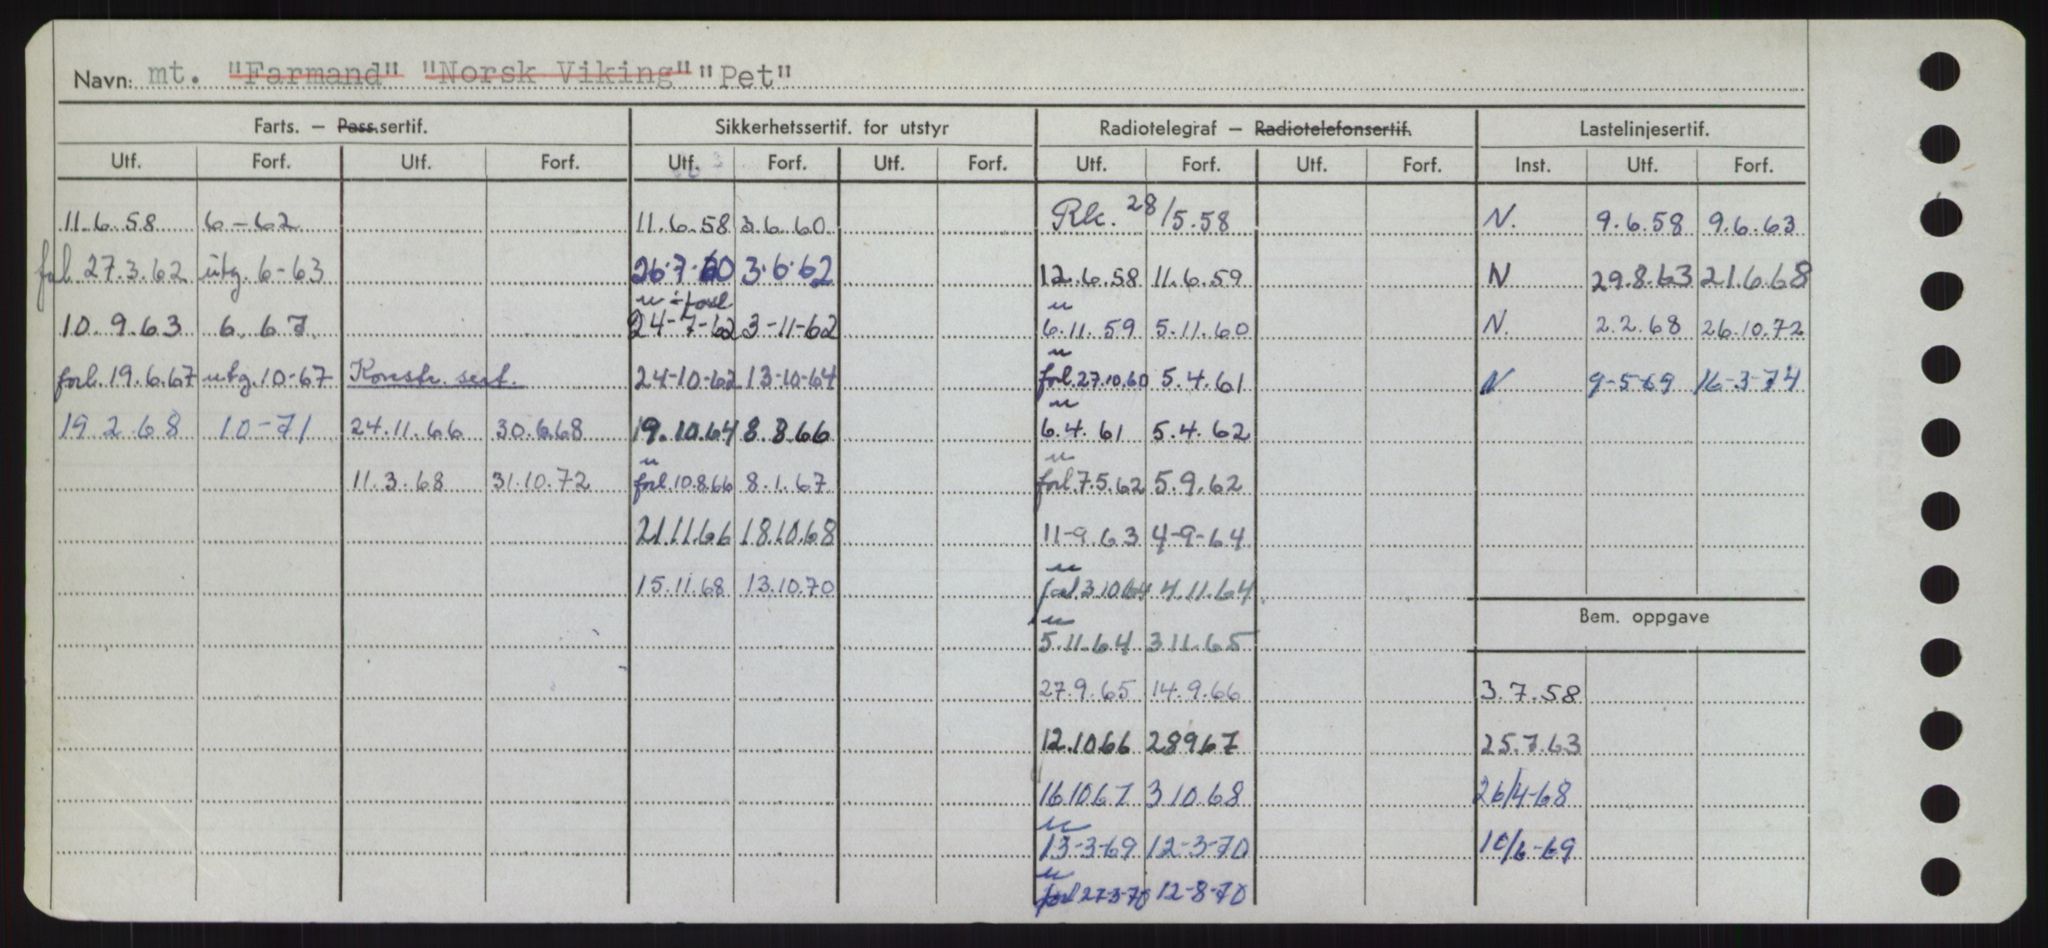 Navn: mt. "Farmand" "Norsk Viking" "Pet"
Farts. — Pass.sertif. Sikkerhetssertif. for utstyr Radiotelegraf — Radiotelefonsertif. Lastelinjesertif.
Utf. Forf. Utf. Forf. Utf. Forf. Utf. Forf. Utf. Forf. Utf. Forf. Inst. Utf. Forf.
11.6.58 6-62 11.6.58 3.6.60 Rk. 28/5.58 N. 9.6.58 9.6.63
forl. 27.3.62 utg. 6-63 26.7.60 3.6.62 12.6.58 11.6.59 N 29.8.63 21.6.68
u ÷ forl u
10.9.63 6.67 24-7-62 3-11-62 6.11.59 5.11.60 N. 2.2.68 26.10.72
u
forl. 19.6.67 utg. 10-67 Konstr. sert. 24-10-62 13-10-64 forl. 27.10.60 5.4.61 N 9-5-69 16-3-74
u
19.2.68 10-71 24.11.66 30.6.68 19.10.64 8.8.66 6.4.61 5.4.62
u u
11.3.68 31.10.72 forl. 10.8.66 8.1.67 forl. 7.5.62 5.9.62
21.11.66 18.10.68 11-9.63 4-9-64
u
15.11.68 13.10.70 forl 3.10.64 4.11.64
Bem. oppgave
u
5.11.64 3.11.65
27.9.65 14.9.66 3.7.58
12.10.66 28967 25.7.63
16.10.67 3.10.68 26/4-68
u
13-3-69 12-3-70 10/6-69
u
forl 27-3-70 12-8-70